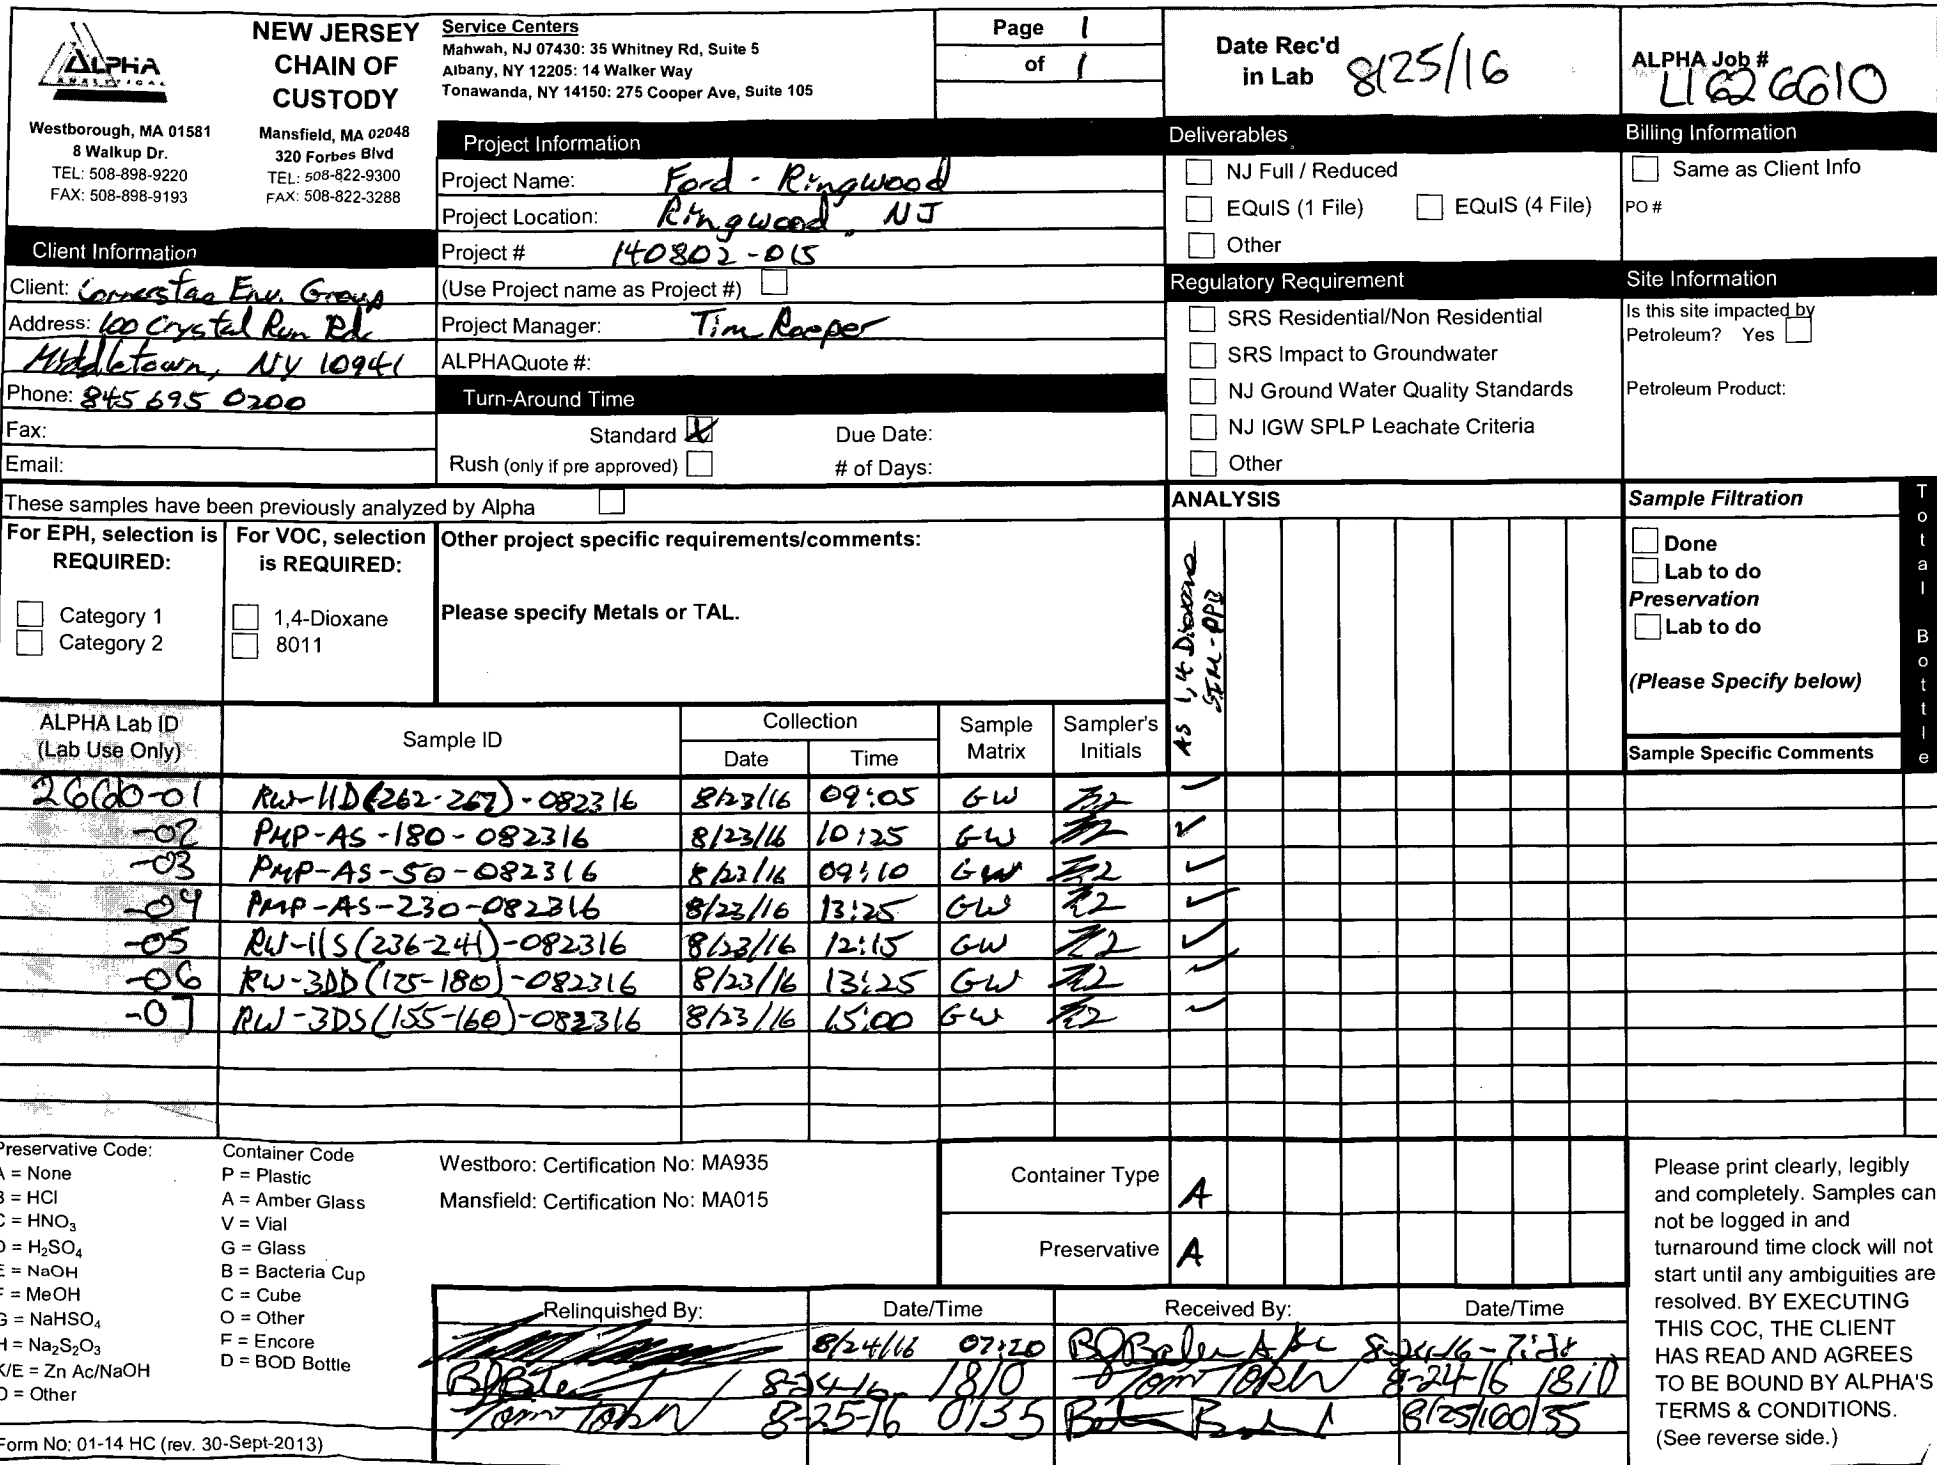 ALPHA
ANALYTICAL
NEW JERSEY
CHAIN OF
CUSTODY
Westborough, MA 01581
8 Walkup Dr.
TEL: 508-898-9220
FAX: 508-898-9193
Mansfield, MA 02048
320 Forbes Blvd
TEL: 508-822-9300
FAX: 508-822-3288
Service Centers
Mahwah, NJ 07430: 35 Whitney Rd, Suite 5
Albany, NY 12205: 14 Walker Way
Tonawanda, NY 14150: 275 Cooper Ave, Suite 105
Page 1
of 1
Date Rec'd
in Lab 8/25/16
ALPHA Job #
L1626610
Client Information
Client: Cornerstone Env. Group
Address: 100 Crystal Run Rd
Middletown, NY 10941
Phone: 845 695 0200
Fax:
Email:
Project Information
Project Name: Ford - Ringwood
Project Location: Ringwood, NJ
Project # 140802-015
(Use Project name as Project #)
Project Manager: Tim Roeper
ALPHAQuote #:
Turn-Around Time
Standard X Due Date:
Rush (only if pre approved) # of Days:
Deliverables
NJ Full / Reduced
EQuIS (1 File) EQuIS (4 File)
Other
Regulatory Requirement
SRS Residential/Non Residential
SRS Impact to Groundwater
NJ Ground Water Quality Standards
NJ IGW SPLP Leachate Criteria
Other
Billing Information
Same as Client Info
PO #
Site Information
Is this site impacted by
Petroleum? Yes
Petroleum Product:
These samples have been previously analyzed by Alpha
For EPH, selection is
REQUIRED:
Category 1
Category 2
For VOC, selection
is REQUIRED:
1,4-Dioxane
8011
Other project specific requirements/comments:
Please specify Metals or TAL.
ANALYSIS
AS 1,4 Dioxane
SIM-PPB
Sample Filtration
Done
Lab to do
Preservation
Lab to do
(Please Specify below)
Total Bottle
ALPHA Lab ID
(Lab Use Only)
Sample ID
Collection
Date Time
Sample
Matrix
Sampler's
Initials
Sample Specific Comments
26610-01 RW-11D(262-267)-082316 8/23/16 09:05 GW ✓
-02 PMP-AS-180-082316 8/23/16 10:25 GW ✓
-03 PMP-AS-50-082316 8/23/16 09:10 GW ✓
-04 PMP-AS-230-082316 8/23/16 13:25 GW ✓
-05 RW-11S(236-241)-082316 8/23/16 12:15 GW ✓
-06 RW-3DD(175-180)-082316 8/23/16 13:25 GW ✓
-07 RW-3DS(155-160)-082316 8/23/16 15:00 GW ✓
Preservative Code:
A = None
B = HCl
C = HNO3
D = H2SO4
E = NaOH
F = MeOH
G = NaHSO4
H = Na2S2O3
K/E = Zn Ac/NaOH
O = Other
Container Code
P = Plastic
A = Amber Glass
V = Vial
G = Glass
B = Bacteria Cup
C = Cube
O = Other
F = Encore
D = BOD Bottle
Westboro: Certification No: MA935
Mansfield: Certification No: MA015
Container Type A
Preservative A
Relinquished By: Date/Time Received By: Date/Time
8/24/16 07:20 8-24-16
8-24-16 1810 Tom TORN 8-24-16 1810
Tom TORN 8-25-16 0135 8/25/16 0135
Please print clearly, legibly
and completely. Samples can
not be logged in and
turnaround time clock will not
start until any ambiguities are
resolved. BY EXECUTING
THIS COC, THE CLIENT
HAS READ AND AGREES
TO BE BOUND BY ALPHA'S
TERMS & CONDITIONS.
(See reverse side.)
Form No: 01-14 HC (rev. 30-Sept-2013)